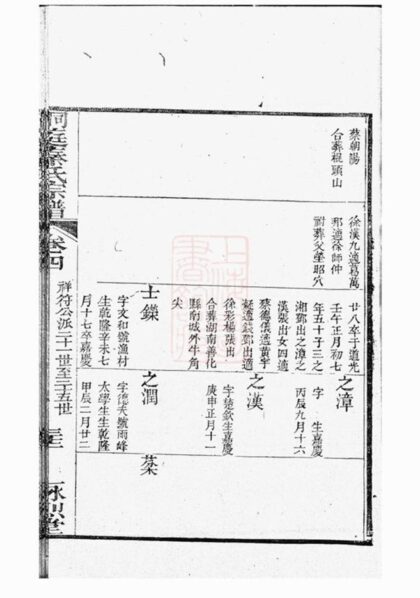 蔡朝陽
合葬棍頭山
徐漢九適葛萬
邢適徐師仲
祔葬父塋昭穴
廿八卒于道光
壬午正月初七
年五十子三之
湘鄧出之漳之
漢張出女四適
蔡德儀適黃宇
凝適錢鄧出適
徐彩楊張出
合葬湖南善化
縣南城外牛角
尖
士鑅
字文和號漁村
生乾隆辛未七
月十七卒嘉慶
之漳
字 生嘉慶
丙辰九月十六
之漢
字楚欽生嘉慶
庚申正月十一
之潤
字德夫號雨峰
太學生生乾隆
甲辰二月廿二
棻
洞庭秦氏宗譜
卷四
祥符公派二十一世至二十五世